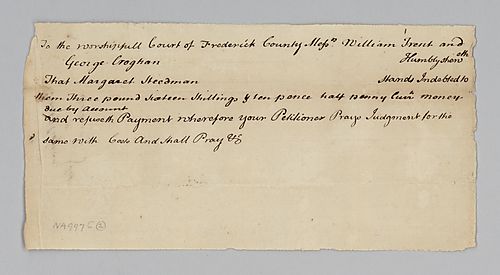 To the worshipfull Court of Frederick County Messrs William Trent and
George Croghan Humbly sheweth
That Margaret Steedman Stands Indebted to
them Three pound Sixteen Shillings & ten pence half penny Curr money
due by Account
and refuseth Payment wherefore your Petitioner Prays Judgment for the
same with Costs And Shall Pray &c
NA997 C 2